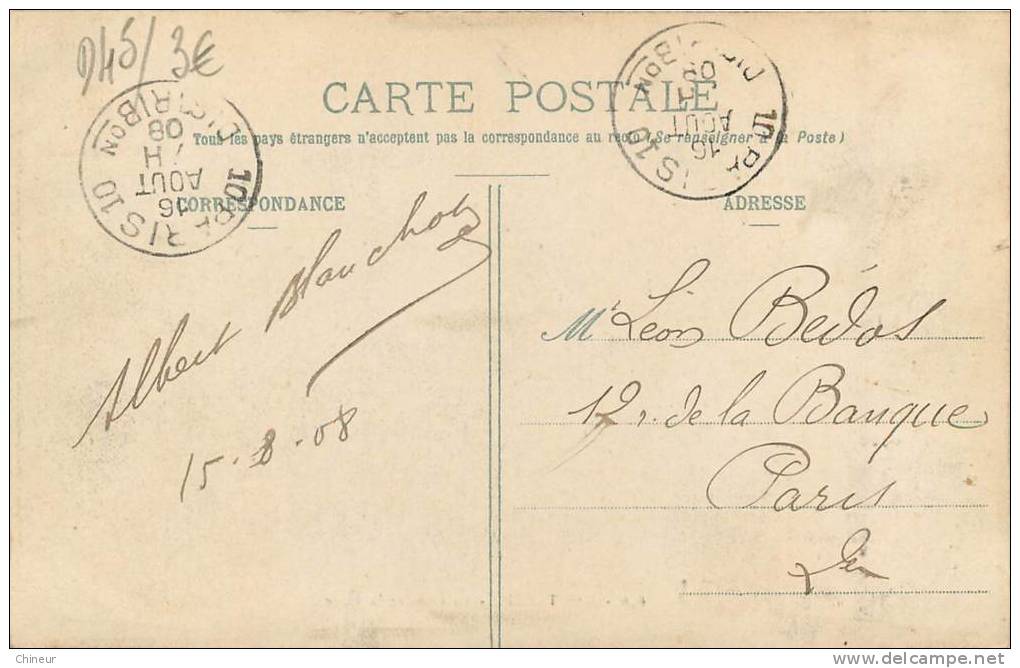 945/3€
CARTE POSTALE
Tous les pays étrangers n'acceptent pas la correspondance au recto (Se renseigner à la Poste)
PARIS 10
DISTRIBON
16
AOUT
7H
08
10
PARIS 10
DISTRIBON
16
AOUT
08
10
CORRESPONDANCE
Albert Blanchon
15-8-08
ADRESSE
Mr Léon Bedos
12 r. de la Banque
Paris
Chineur
delcampe.net